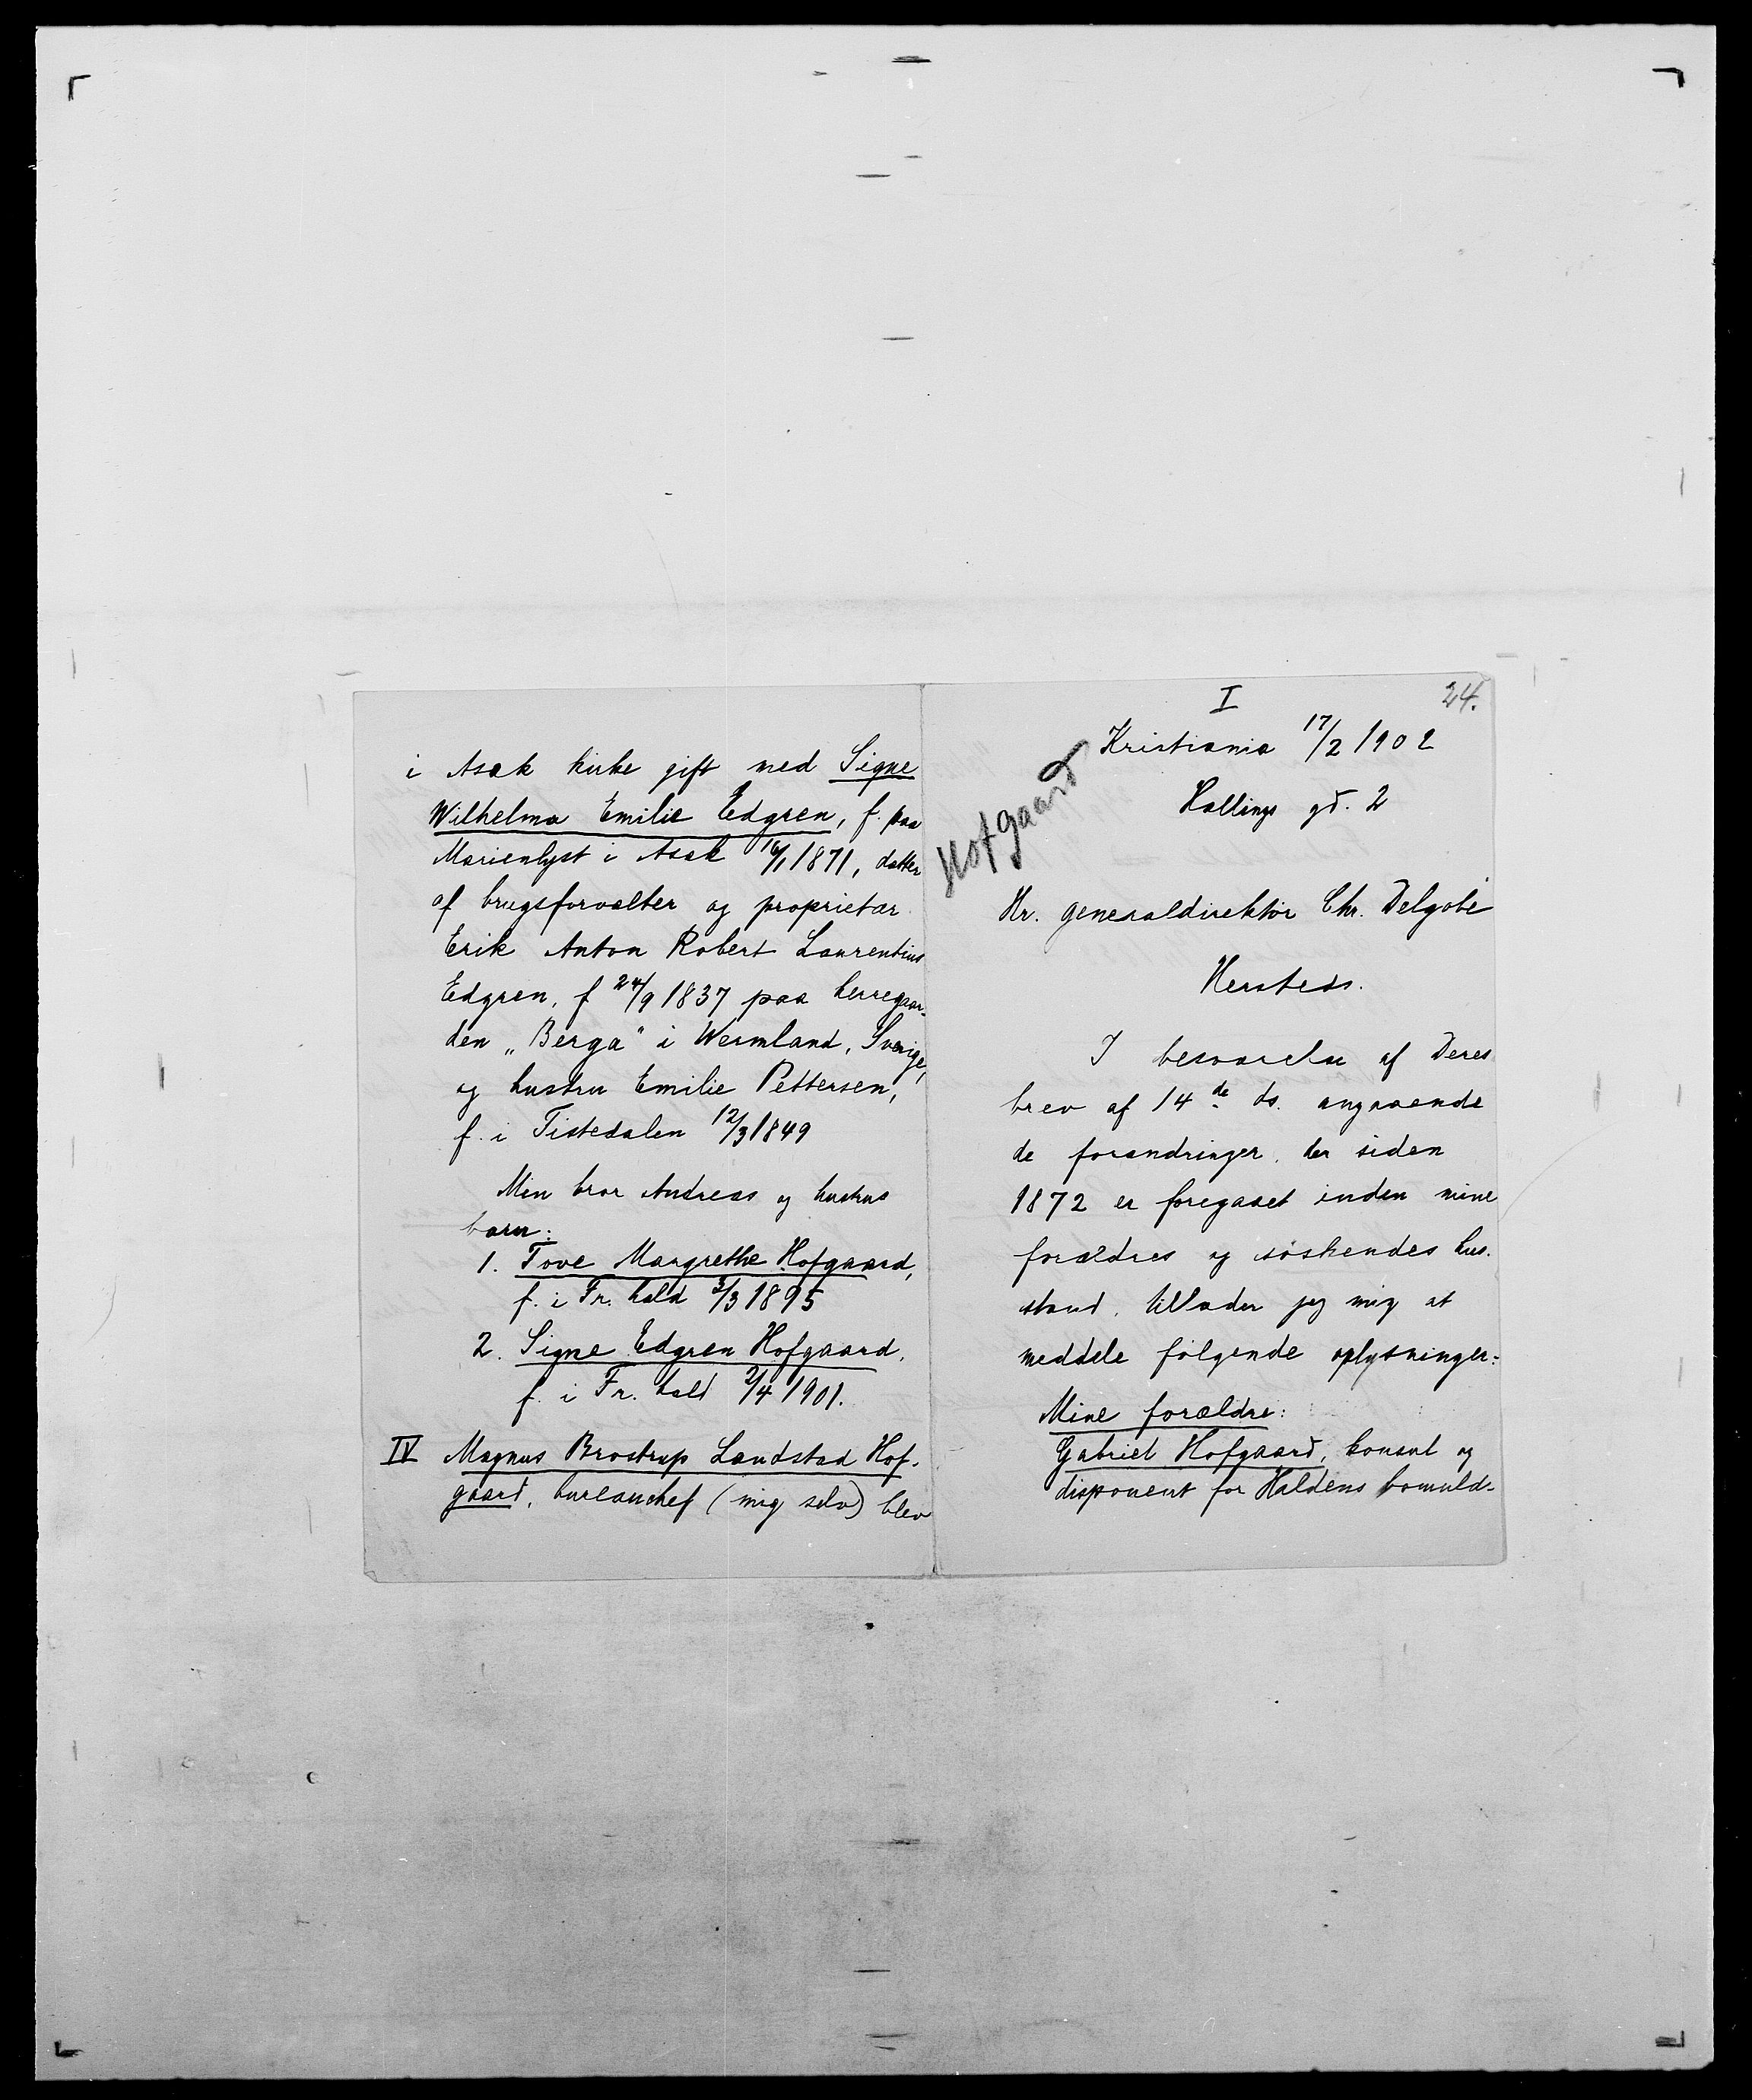 i Asak kirke gift med Signe
Wilhelma Emilie Edgren, f. paa
Marienlyst i Asak 16/1 1871, datter
af brugsforvalter og proprietær
Erik Anton Robert Laurentius
Edgren, f 24/9 1837 paa herregaar-
den „Berga" i Wermland, Sverige,
og hustru Emilie Pettersen,
f. i Tistedalen 12/3 1849
Min bror Andreas og hustrus
børn:
1. Tove Margrethe Hofgaard,
f. i Fr.hald 3/3 1895
2. Signe Edgren Hofgaard,
f. i Fr.hald 2/4 1901.
IV Magnus Brostrup Landstad Hof-
gaard, bureauchef (mig selv) blev
I 24.
Kristiania 17/2 1902
Hallings gd. 2
Hofgaard
Hr. generaldirektør Chr. Delgobe
Hersteds.
I besvarelse af Deres
brev af 14de ds. angaaende
de forandringer, der siden
1872 er foregaaet inden mine
forældres og søskendes hus-
stand, tillader jeg mig at
meddele følgende oplysninger:
Mine forældre:
Gabriel Hofgaard, konsul og
disponent for Haldens bomuld-